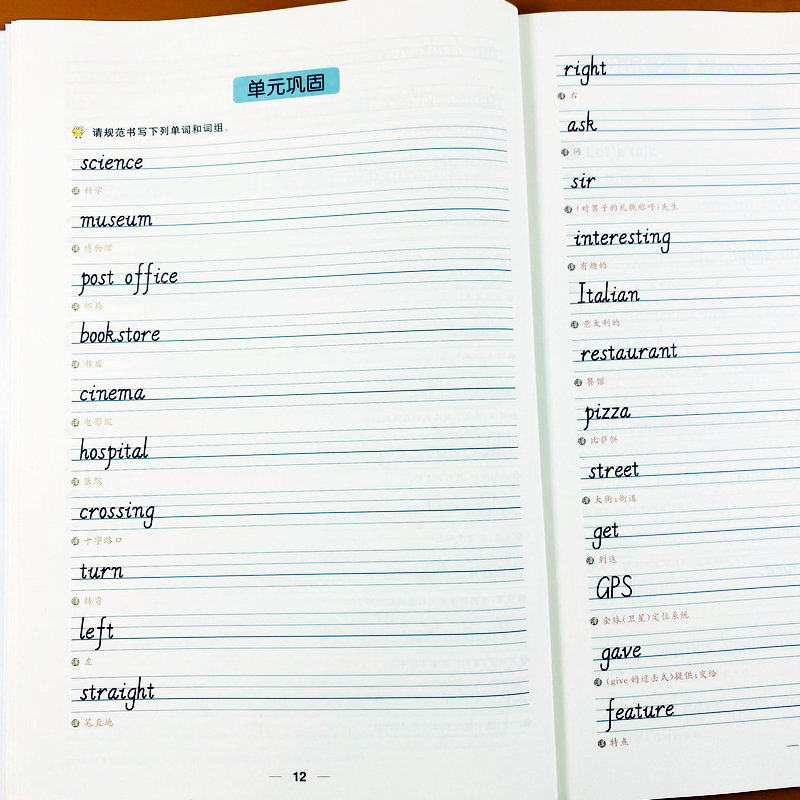 单元巩固
请规范书写下列单词和词组。
science
译 科学
museum
译 博物馆
post office
译 邮局
bookstore
译 书店
cinema
译 电影院
hospital
译 医院
crossing
译 十字路口
turn
译 转弯
left
译 左
straight
译 笔直地
12
right
译 右
ask
译 问
sir
译 (对男子的礼貌称呼)先生
interesting
译 有趣的
Italian
译 意大利的
restaurant
译 餐馆
pizza
译 比萨饼
street
译 大街;街道
get
译 到达
GPS
译 全球(卫星)定位系统
gave
译 (give 的过去式)提供;交给
feature
译 特点